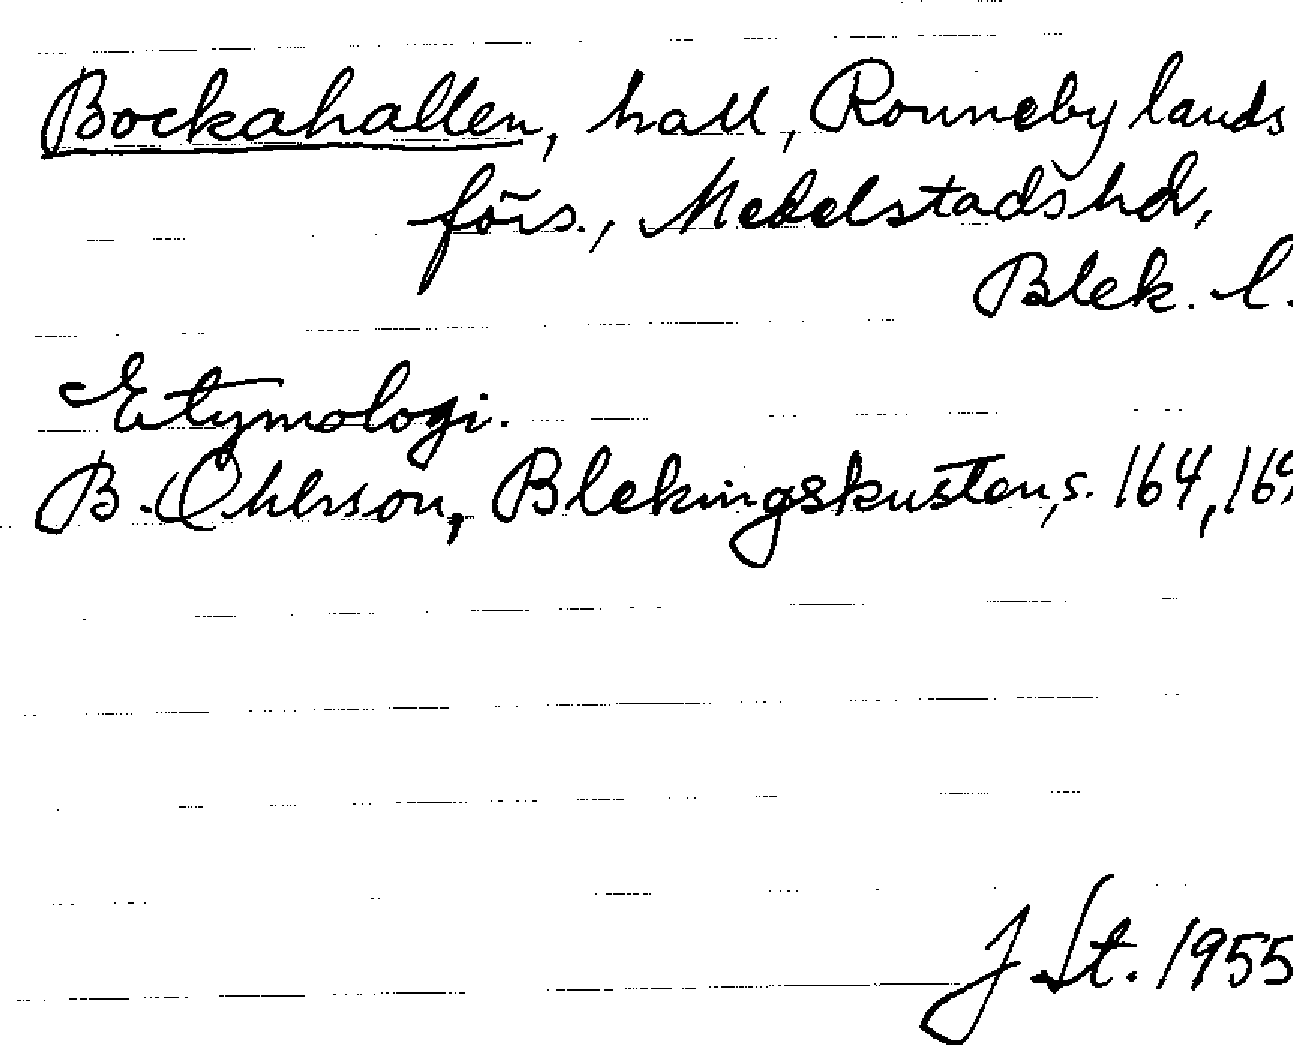 Bockahallen, hall, Ronneby lands
förs., Medelstads hd,
Blek. l.
Etymologi.
B. Ohlsson, Blekingskusten, s. 164, 169
J St. 1955